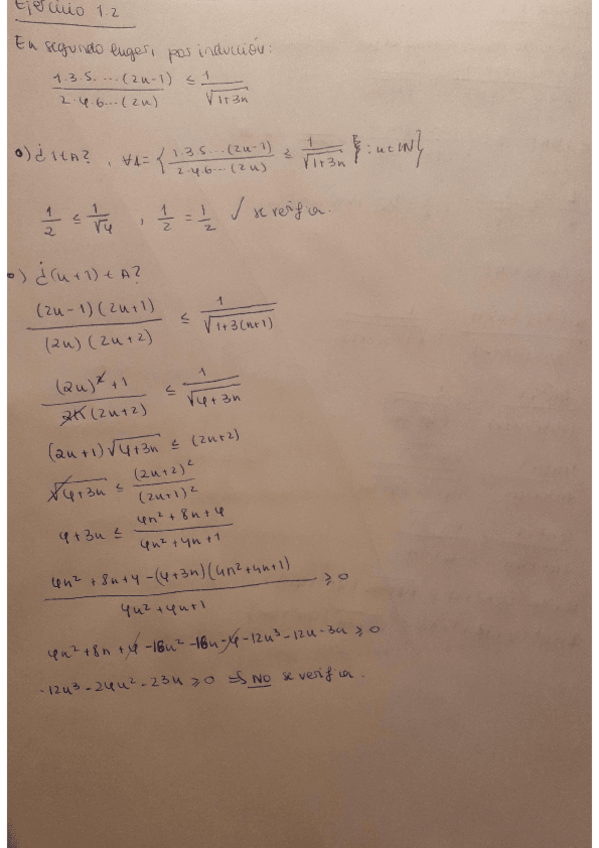 Ejercicio 1.2
En segundo lugar, por inducción:
1·3·5·...(2n-1) / 2·4·6...(2n) ≤ 1 / √1+3n
•) ¿1∈A? , ∀A = { 1·3·5...(2n-1) / 2·4·6...(2n) ≤ 1 / √1+3n : n∈ℕ}
1/2 ≤ 1/√4 , 1/2 = 1/2 ✓ se verifica.
•) ¿(n+1)∈A?
(2n-1)(2n+1) / (2n)(2n+2) ≤ 1 / √1+3(n+1)
(2n)²+1 / 2n(2n+2) ≤ 1 / √4+3n
(2n+1)√4+3n ≤ (2n+2)
√4+3n ≤ (2n+2)² / (2n+1)²
4+3n ≤ 4n²+8n+4 / 4n²+4n+1
4n²+8n+4-(4+3n)(4n²+4n+1) / 4n²+4n+1 ≥ 0
4n²+8n+4-16n²-16n-4-12n³-12n-3n ≥ 0
-12n³-24n²-23n ≥ 0 ⇒ NO se verifica.